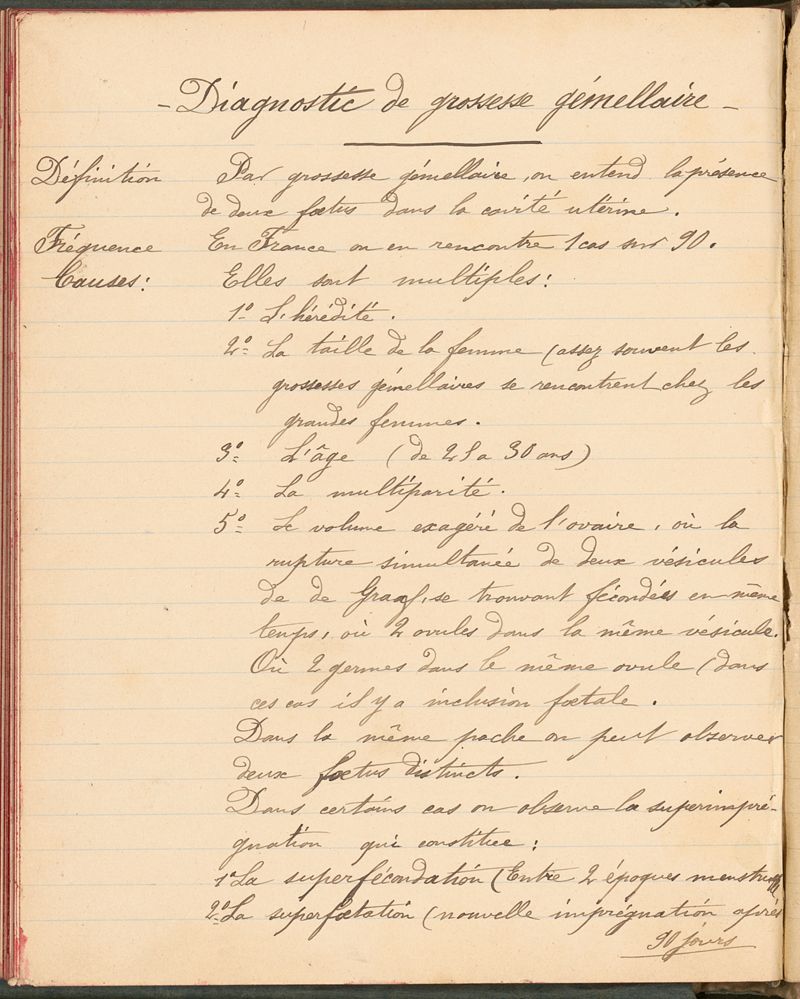 - Diagnostic de grossesse gémellaire -
Définition Par grossesse gémellaire, on entend la présence
de deux fœtus dans la cavité utérine.
Fréquence En France on en rencontre 1 cas sur 90.
Causes: Elles sont multiples:
1º L'hérédité.
2º La taille de la femme (assez souvent les
grossesses gémellaires se rencontrent chez les
grandes femmes.
3º L'âge (de 25 a 30 ans)
4º La multiparité.
5º Le volume exagéré de l'ovaire, où la
rupture simultanée de deux vésicules
de de Graaf, se trouvant fécondées en même
temps, où 2 ovules dans la même vésicule.
Où 2 germes dans le même ovule (dans
ces cas il y a inclusion fœtale.
Dans la même poche on peut observer
deux fœtus distincts.
Dans certains cas on observe la superimpré-
gnation qui constitue:
1º La superfécondation (Entre 2 époques
2º La superfœtation (nouvelle imprégnation après
90 jours